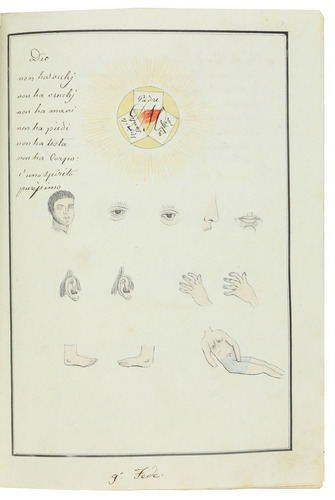 Dio
non ha occhj
non ha orecchj
non ha mani
non ha piedi
non ha testa
non ha Corpo:
è uno Spirito
purissimo
Padre
9ª. Fede.